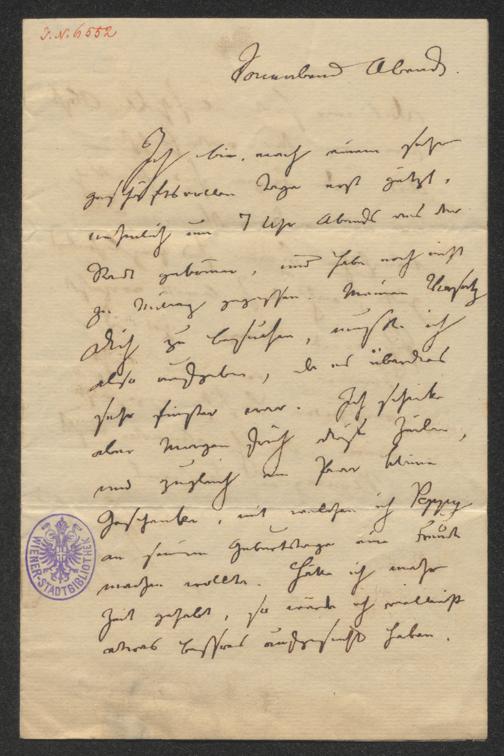 I. N. 61552
Sonnabend Abends.
Ich bin, nach einem sehr
geschäftsvollen Tage erst jetzt,
nehmlich um 7 Uhr Abends aus der
Stadt gekommen, und habe noch nicht
zu Mittag gegessen. Meinen Vorsatz
Dich zu besuchen, mußte ich
also aufgeben, da es überdies
sehr finster war. Ich schicke
aber Morgen früh diese Zeilen,
und zugleich ein Paar kleine
Geschenke, mit welchen ich Peppy
an seinem Geburtstage eine Freude
machen wollte. Hätte ich mehr
Zeit gehabt, so würde ich vielleicht
etwas besseres ausgesucht haben.
WIENER-STADTBIBLIOTHEK